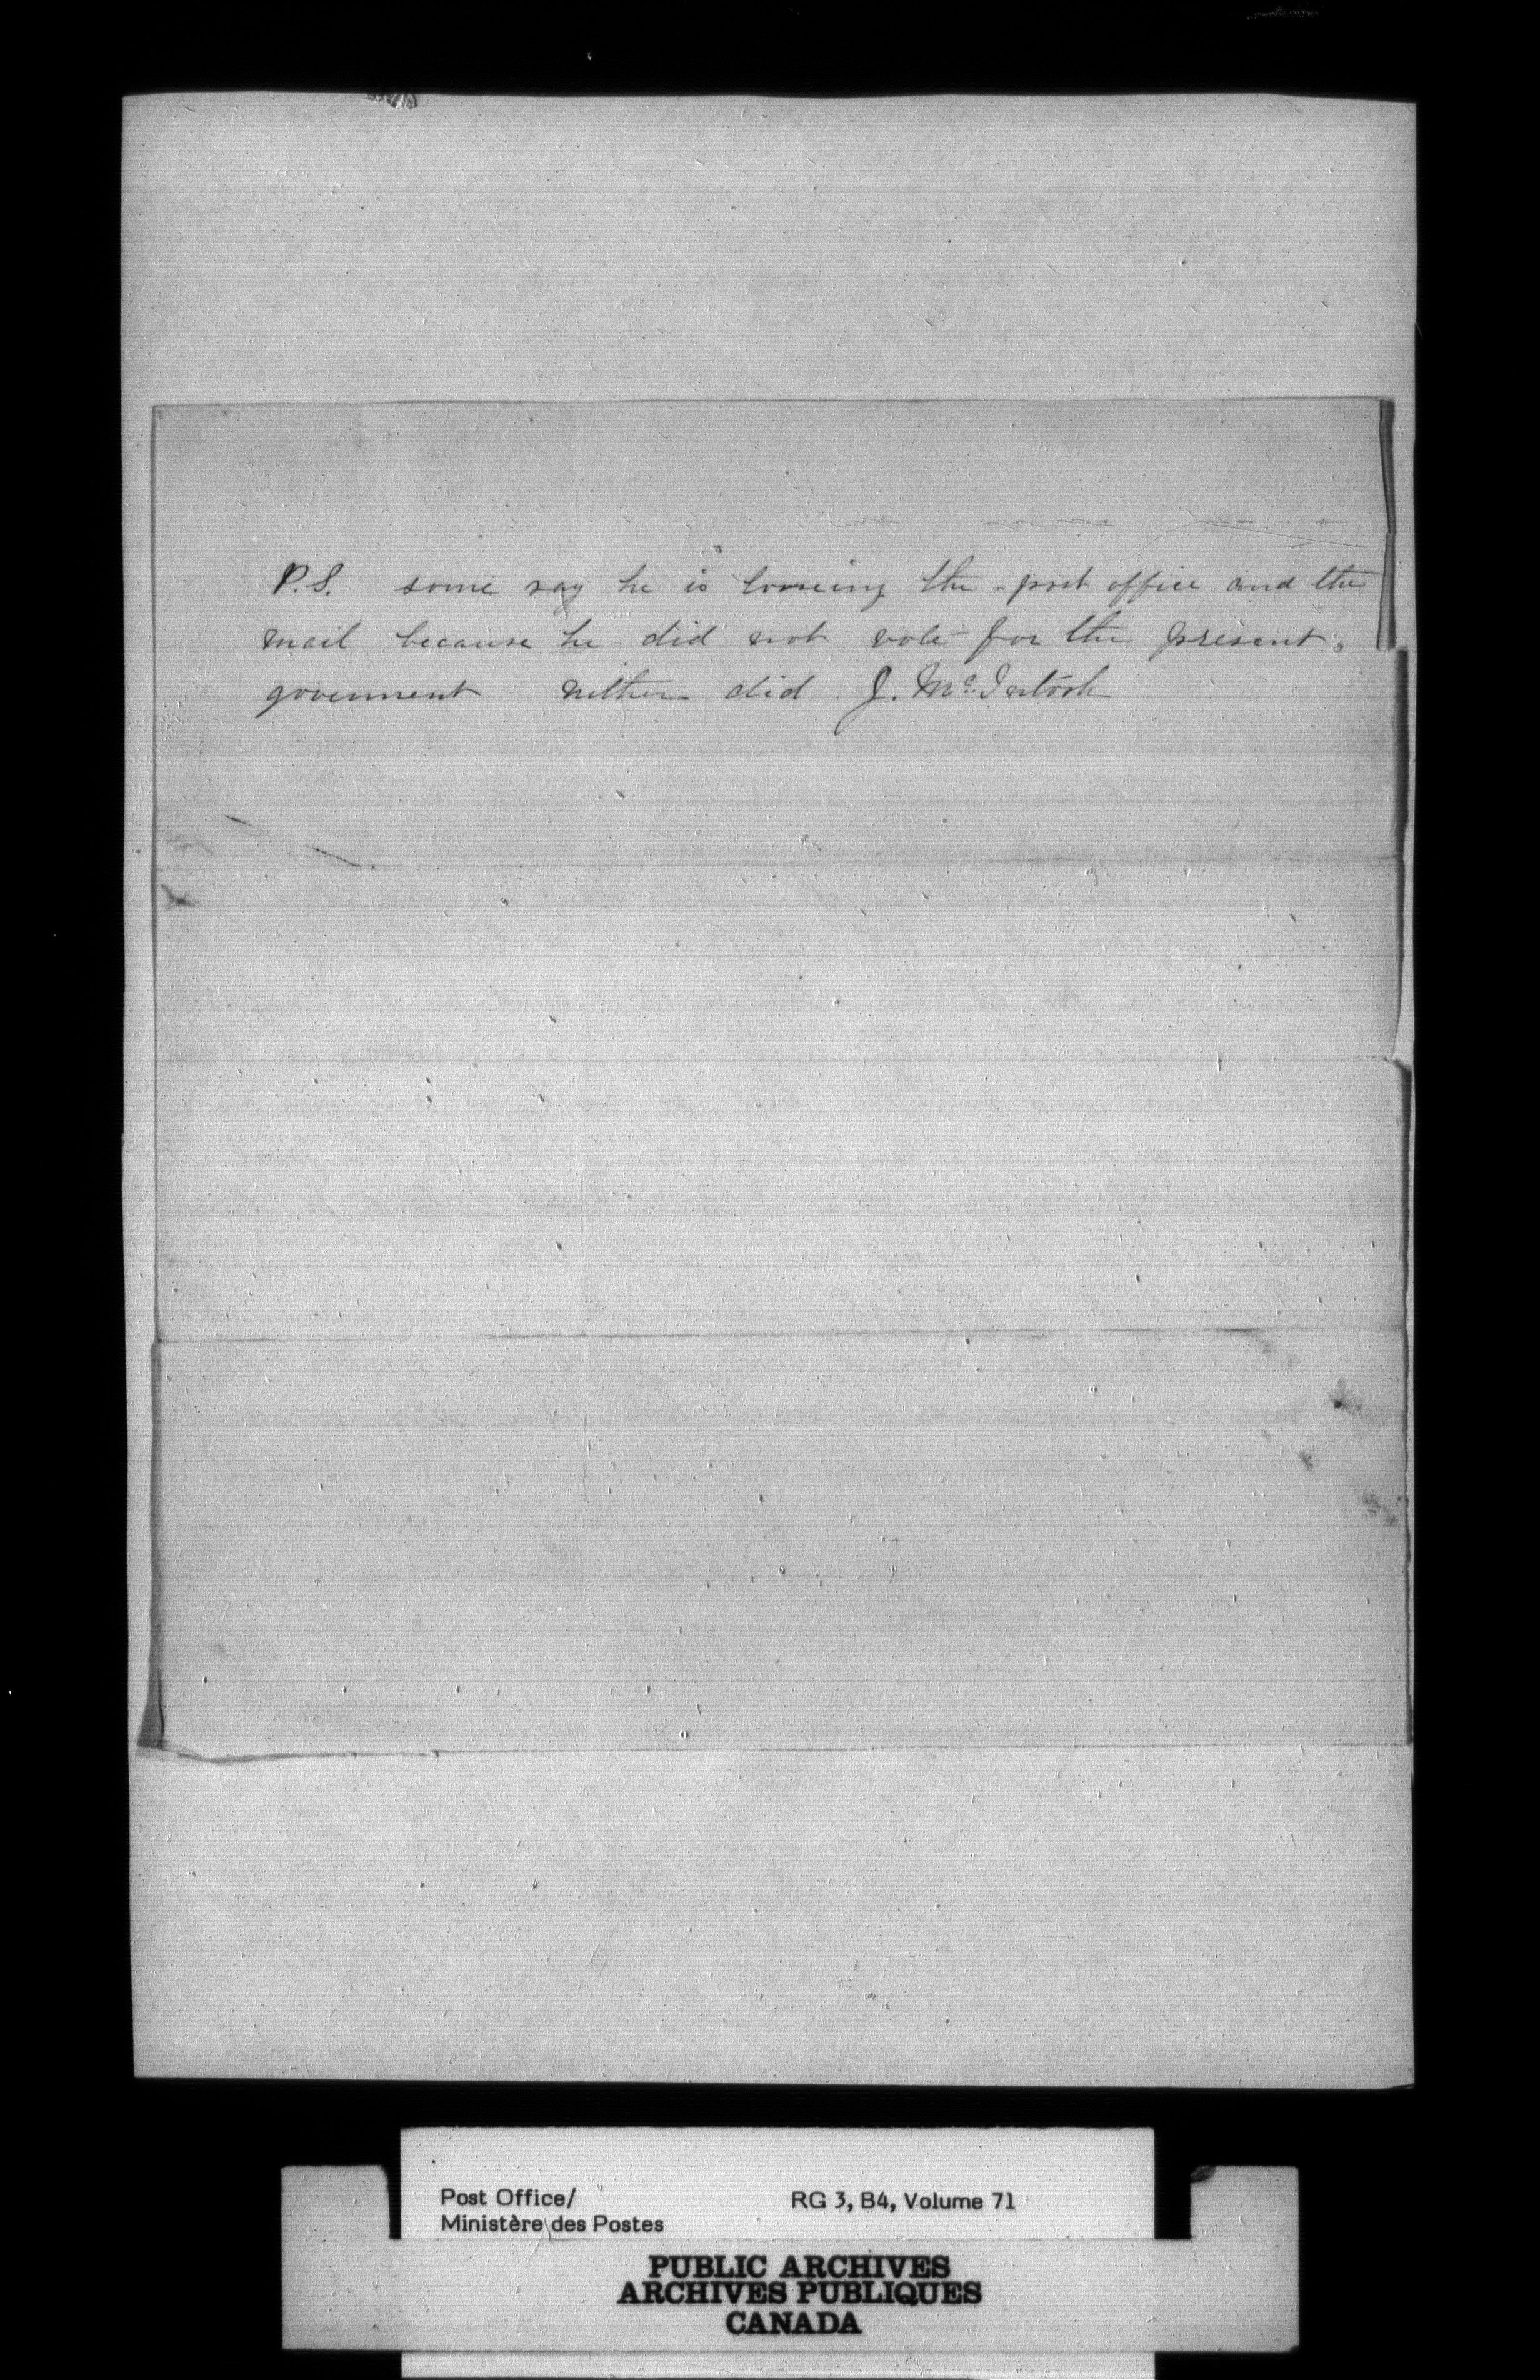 P.S. some say he is looseing the post office and the
mail because he did not vote for the present
goverment nither did J. Mc.Intosh
Post Office/
Ministère des Postes
RG 3, B4, Volume 71
PUBLIC ARCHIVES
ARCHIVES PUBLIQUES
CANADA